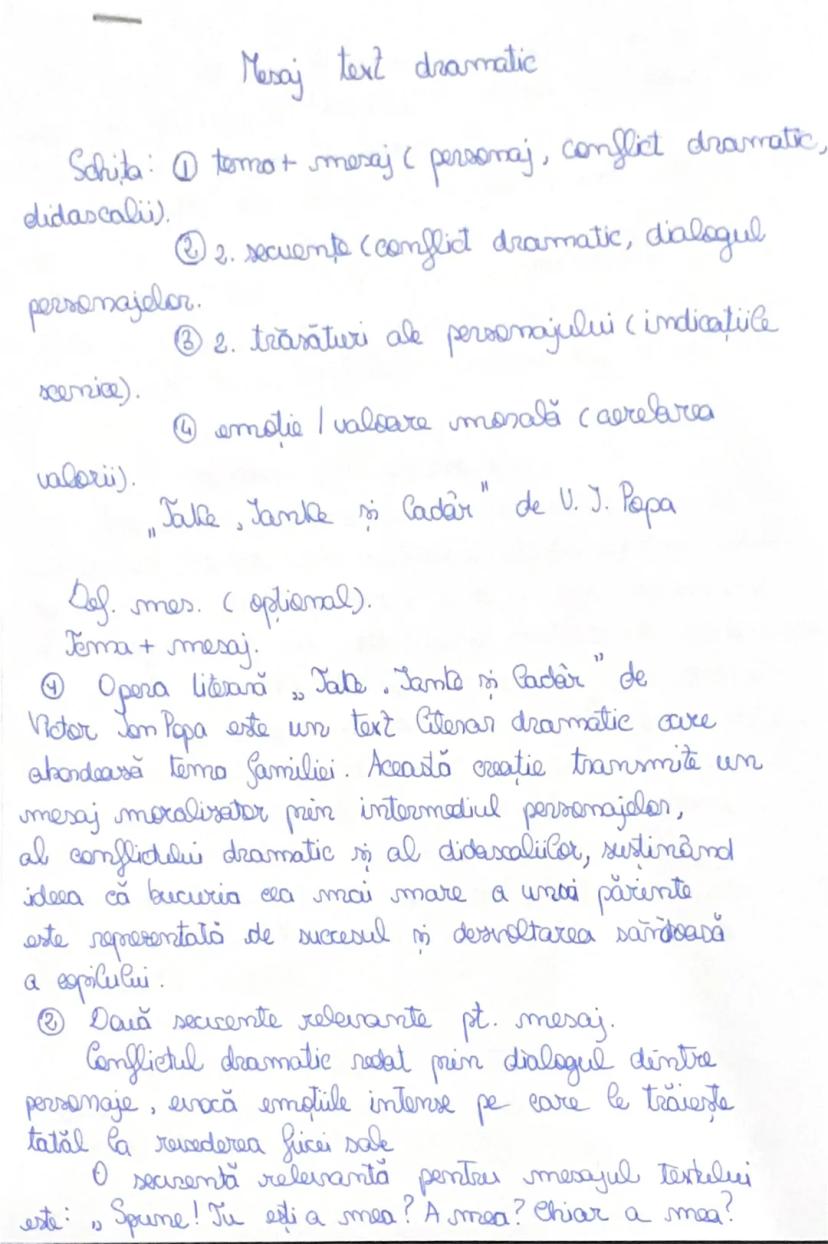 Mesaj text dramatic
Schița: ① tema + mesaj ( personaj, conflict dramatic,
didascalii).
② 2. secvențe (conflict dramatic, dialogul
personajelor.
③ 2. trăsături ale personajului (indicațiile
scenice).
④ emoție / valoare morală (
valorii).
„Take, Ianke și Cadâr" de V. I. Popa
Def. mes. ( opțional).
Tema + mesaj.
① Opera literară „Take, Ianke și Cadâr" de
Victor Ion Popa este un text literar dramatic care
abordează tema familiei. Această creație transmite un
mesaj moralizator prin intermediul personajelor,
al conflictului dramatic și al didascaliilor, susținând
ideea că bucuria cea mai mare a unui părinte
este reprezentată de succesul și dezvoltarea sănătoasă
a copilului.
② Două secvente relevante pt. mesaj.
Conflictul dramatic redat prin dialogul dintre
personaje, evocă emoțiile intense pe care le trăiește
tatăl la revederea fiicei sale
O secvență relevantă pentru mesajul textului
este: „Spune! Tu ești a mea? A mea? Chiar a mea?